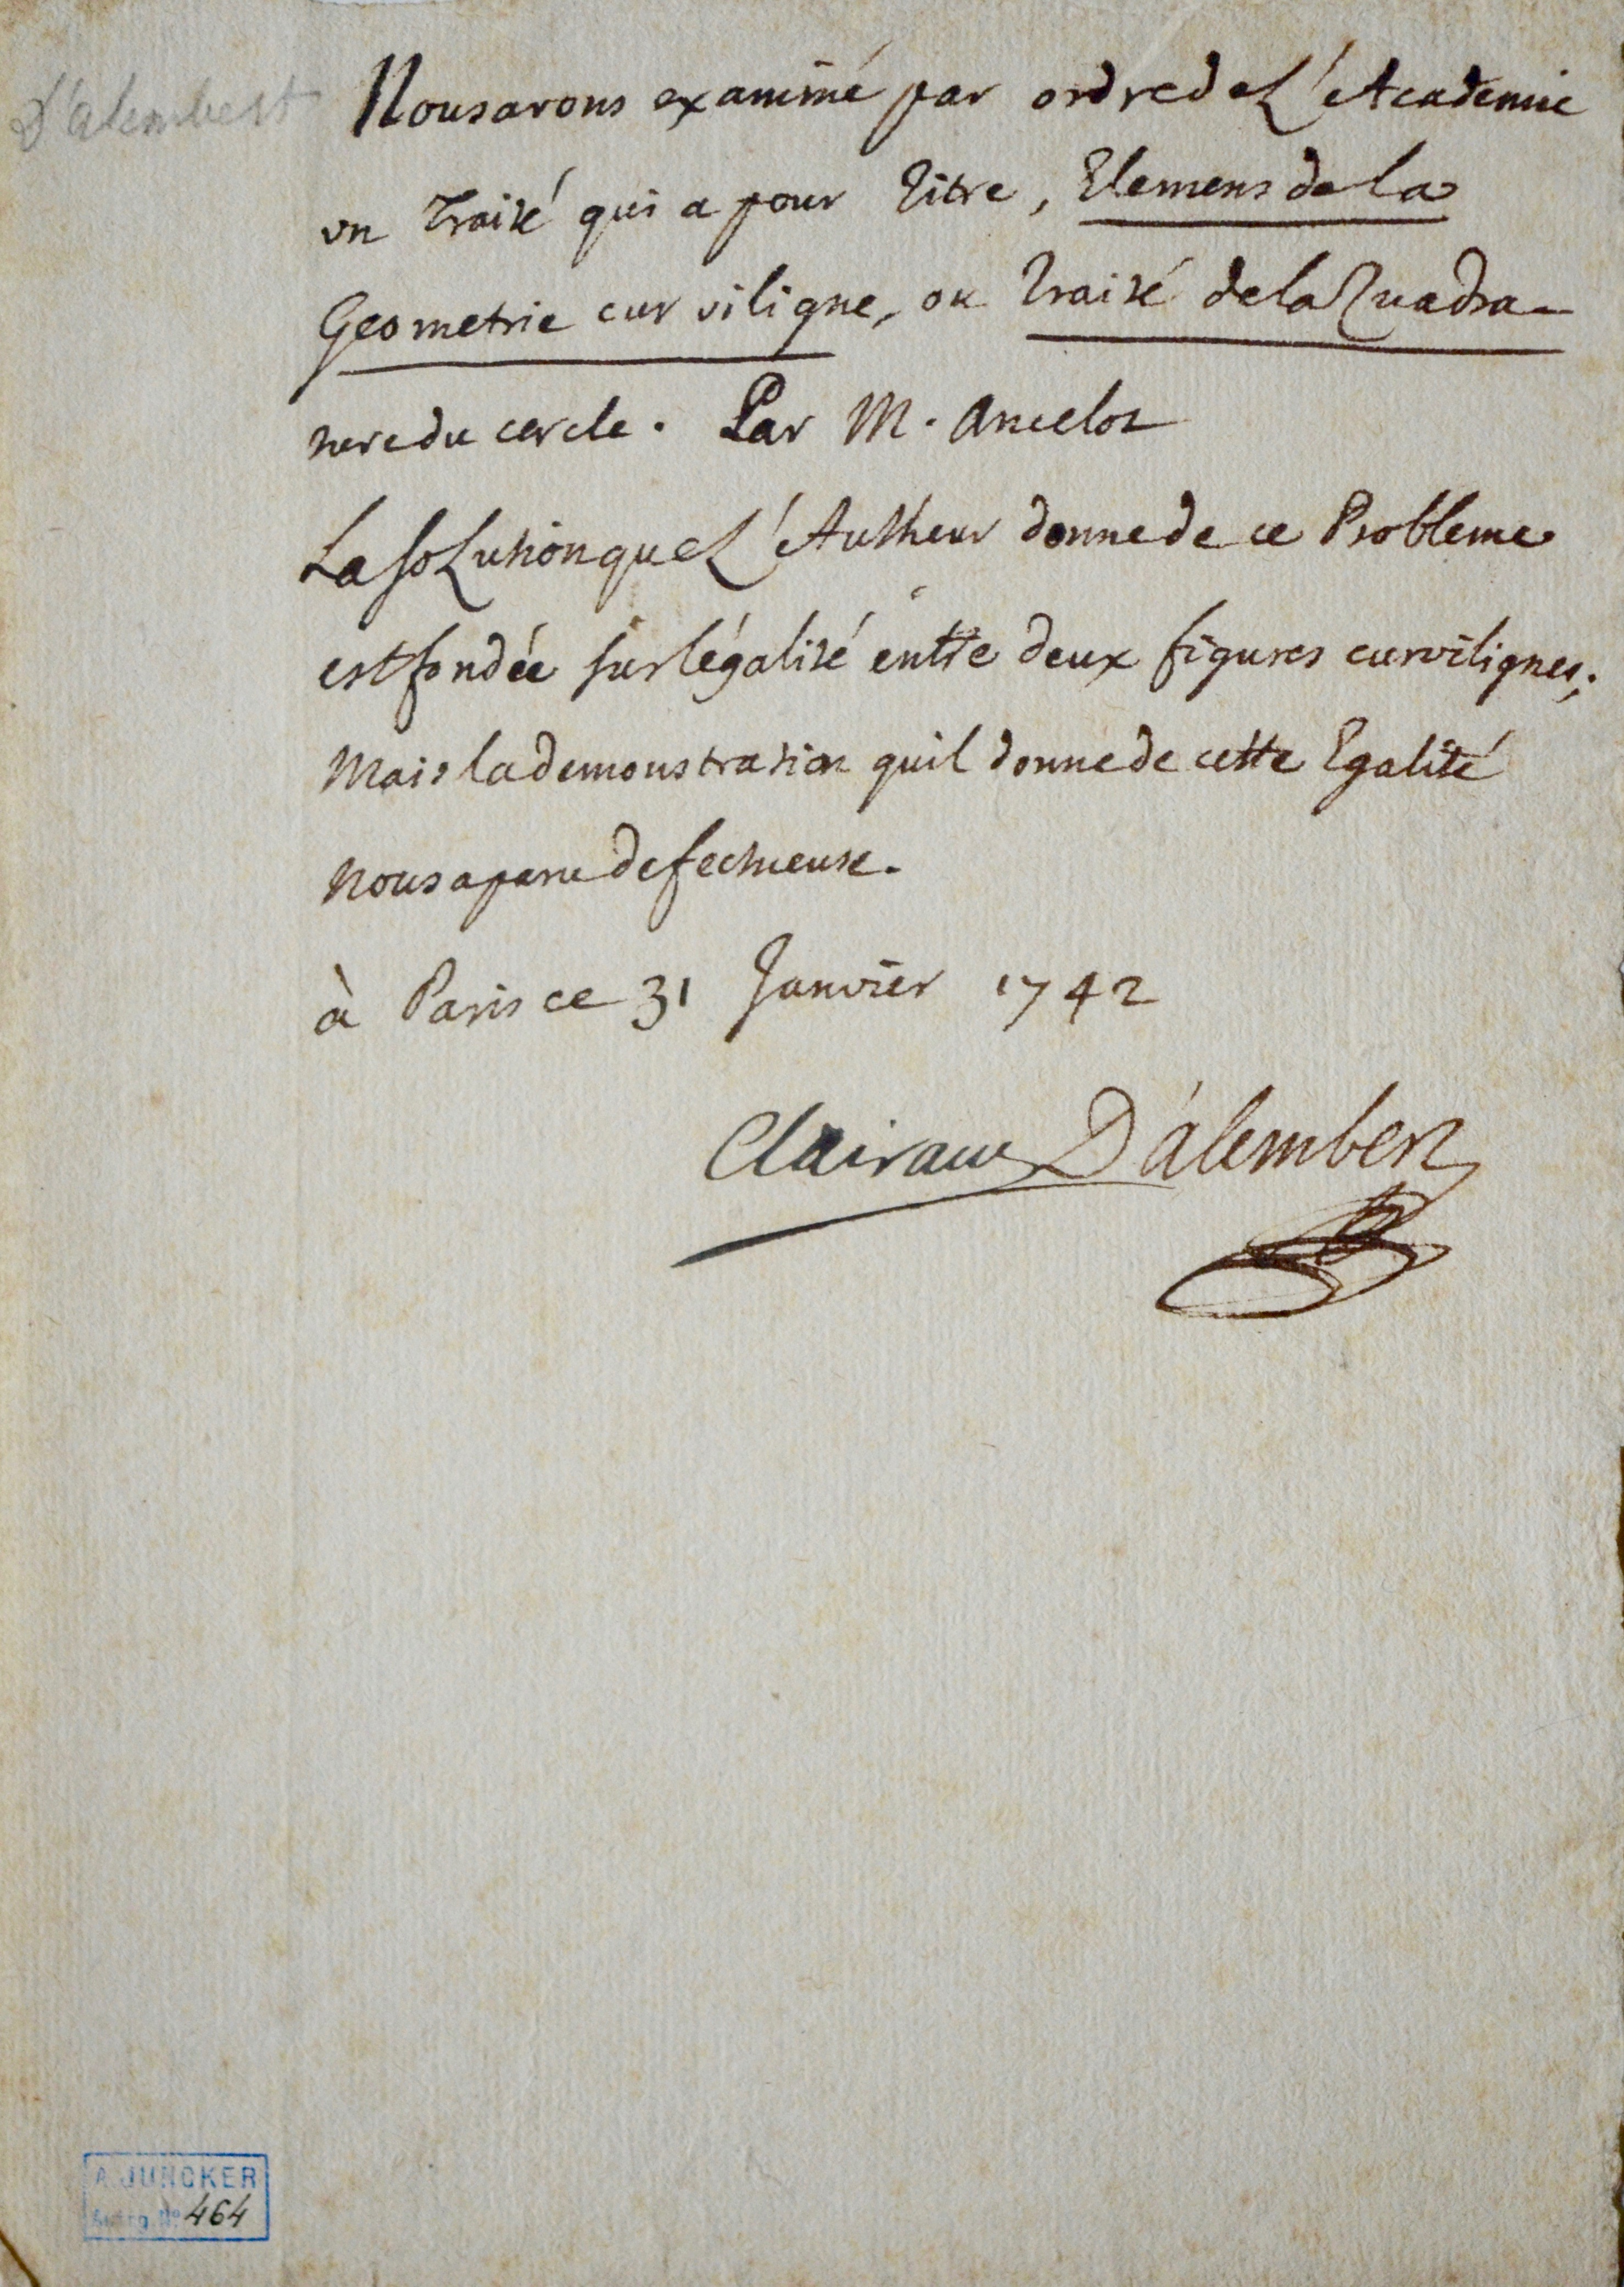 D'alembert
Nous avons examiné par ordre de L'Academie
un Traité qui a pour Titre, Elemens de la
Geometrie curviligne, ou Traité de la Quadra-
ture du cercle. Par M. Ancelot
La soLution que L'Autheur donne de ce Probleme
est fondée sur légalité entre deux figures curvilignes;
Mais la demonstration quil donne de cette Egalité
nous a paru defectueuse.
à Paris ce 31 Janvier 1742
Clairaut D'alembert
A. JUNCKER
Autog. No. 464